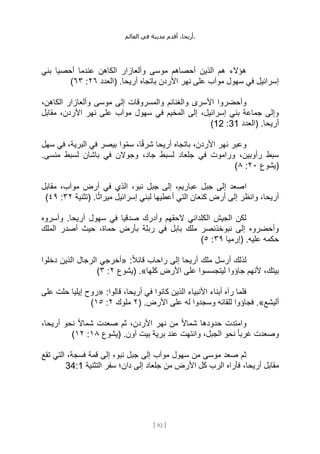 أريحا، أقدم مدينة في العالم.
هؤلاء هم الذين أحصاهم موسى وألعازار الكاهن عندما أحصيا بني
إسرائيل في سهول موآب على نهر الأردن باتجاه أريحا. (العدد ٢٦: ٦٣)
وأحضروا الأسرى والغنائم والمسروقات إلى موسى وألعازار الكاهن،
وإلى جماعة بني إسرائيل، إلى المخيم في سهول موآب على نهر الأردن، مقابل
أريحا. (العدد 31: 12)
وعبر نهر الأردن، باتجاه أريحا شرقًا، سمّوا بيصر في البرية، في سهل
سبط رأوبين، وراموت في جلعاد لسبط جاد، وجولان في باشان لسبط منسى.
(يشوع ٢٠: ٨)
اصعد إلى جبل عباريم، إلى جبل نبو، الذي في أرض موآب، مقابل
أريحا، وانظر إلى أرض كنعان التي أعطيها لبني إسرائيل ميراثًا. (تثنية ٣٢: ٤٩)
لكن الجيش الكلداني لاحقهم وأدرك صدقيا في سهول أريحا. وأسروه
وأحضروه إلى نبوخذنصر ملك بابل في ربلة بأرض حماة، حيث أصدر الملك
حكمه عليه. (إرميا ٣٩: ٥)
لذلك أرسل ملك أريحا إلى راحاب قائلاً: «أخرجي الرجال الذين دخلوا
بيتك، لأنهم جاؤوا ليتجسسوا على الأرض كلها». (يشوع ٢: ٣)
فلما رآه أبناء الأنبياء الذين كانوا في أريحا، قالوا: «روح إيليا حلت على
أليشع». فجاؤوا للقائه وسجدوا له على الأرض. (٢ ملوك ٢: ١٥)
وامتدت حدودها شمالاً من نهر الأردن، ثم صعدت شمالاً نحو أريحا،
وصعدت غرباً نحو الجبل، وانتهت عند برية بيت أون. (يشوع ١٨: ١٢)
ثم صعد موسى من سهول موآب إلى جبل نبو، إلى قمة فسجة، التي تقع
مقابل أريحا، فأراه الرب كل الأرض من جلعاد إلى دان؛ سفر التثنية 34:1
[ 92 ]